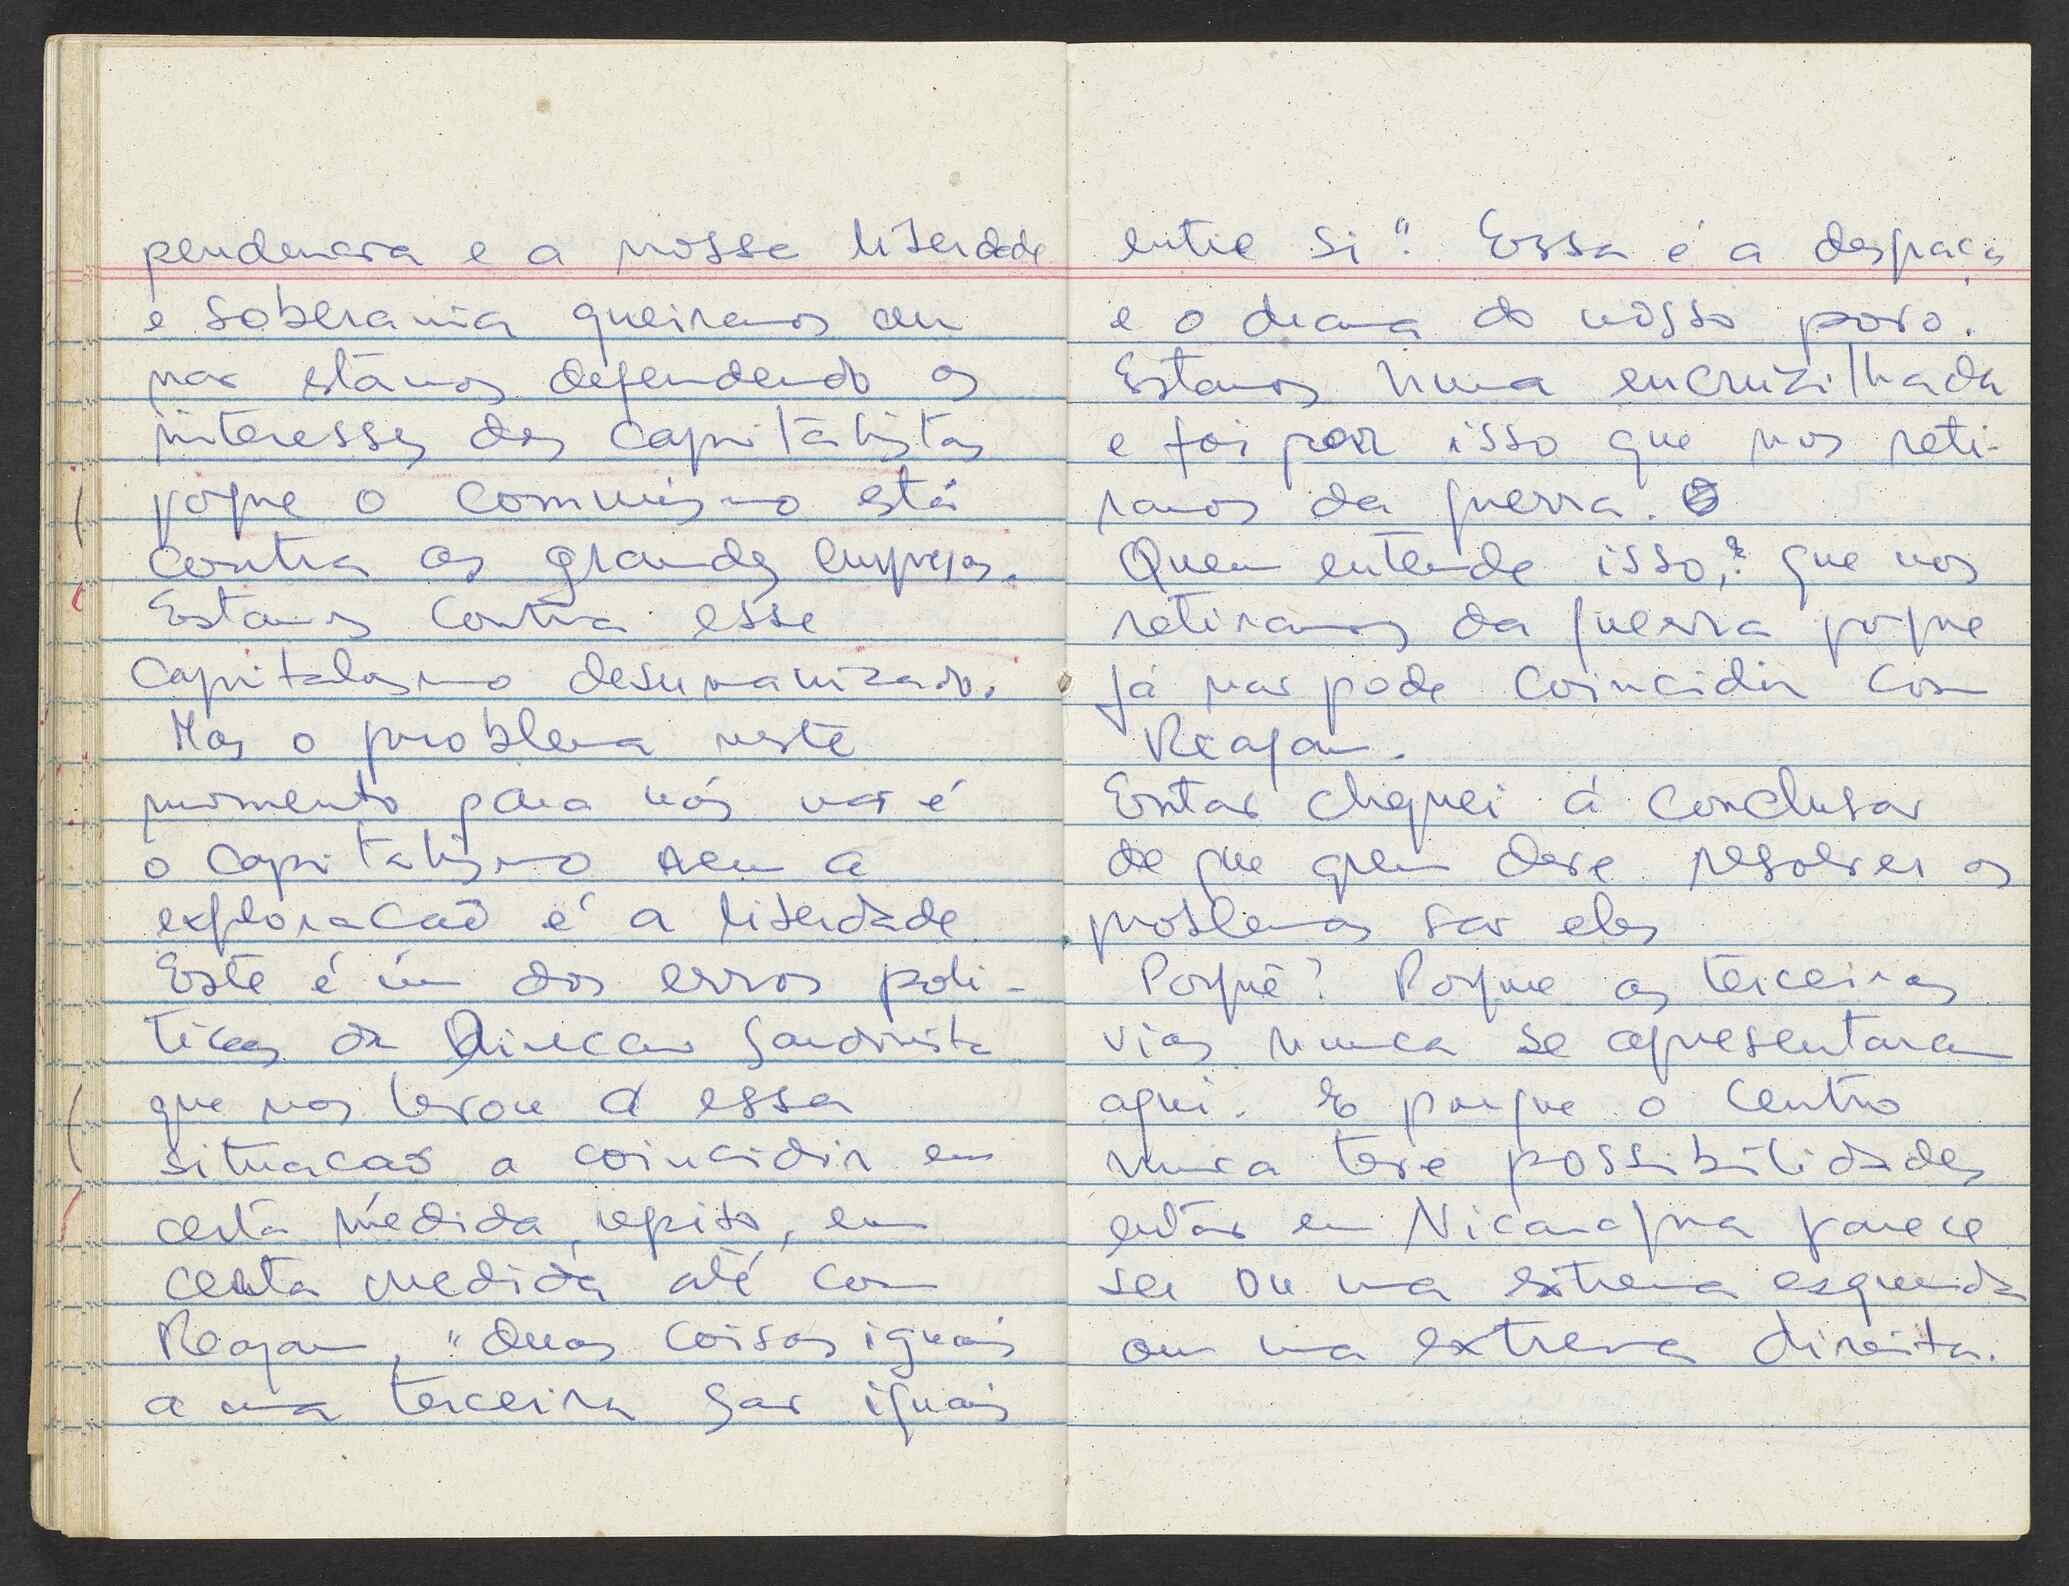 pendencia e a nossa liberdade
e soberania queiramos ou
nao estamos defendendo os
interesses dos capitalistas
porque o comunismo está
contra as grandes empresas.
Estamos contra esse
capitalismo desumanizado.
Mas o problema neste
momento para nós nao é
o capitalismo nem a
exploracaõ é a liberdade
Este é um dos erros poli-
ticos da Direcao Sandinista
que nos levou a essa
situacao a coincidir em
certa medida, repito, em
certa medida até com
Reagan, "duas coisas iguais
a uma terceira sao iguais
entre si". Essa é a desgraça
e o drama do nosso povo.
Estamos numa encruzilhada
e foi por isso que nos reti-
ramos da guerra.
Quem entende isso,? que nos
retiramos da guerra porque
já nao pode coincidir com
Reagan.
Entao cheguei á conclusao
de que quem deve resolver os
problemas sao eles
Porquê? Porque as terceiras
vias nunca se apresentaram
aqui. E porque o centro
nunca teve possibilidades
entao em Nicaragua parece
ser ou uma extrema esquerda
ou uma extrema direita.